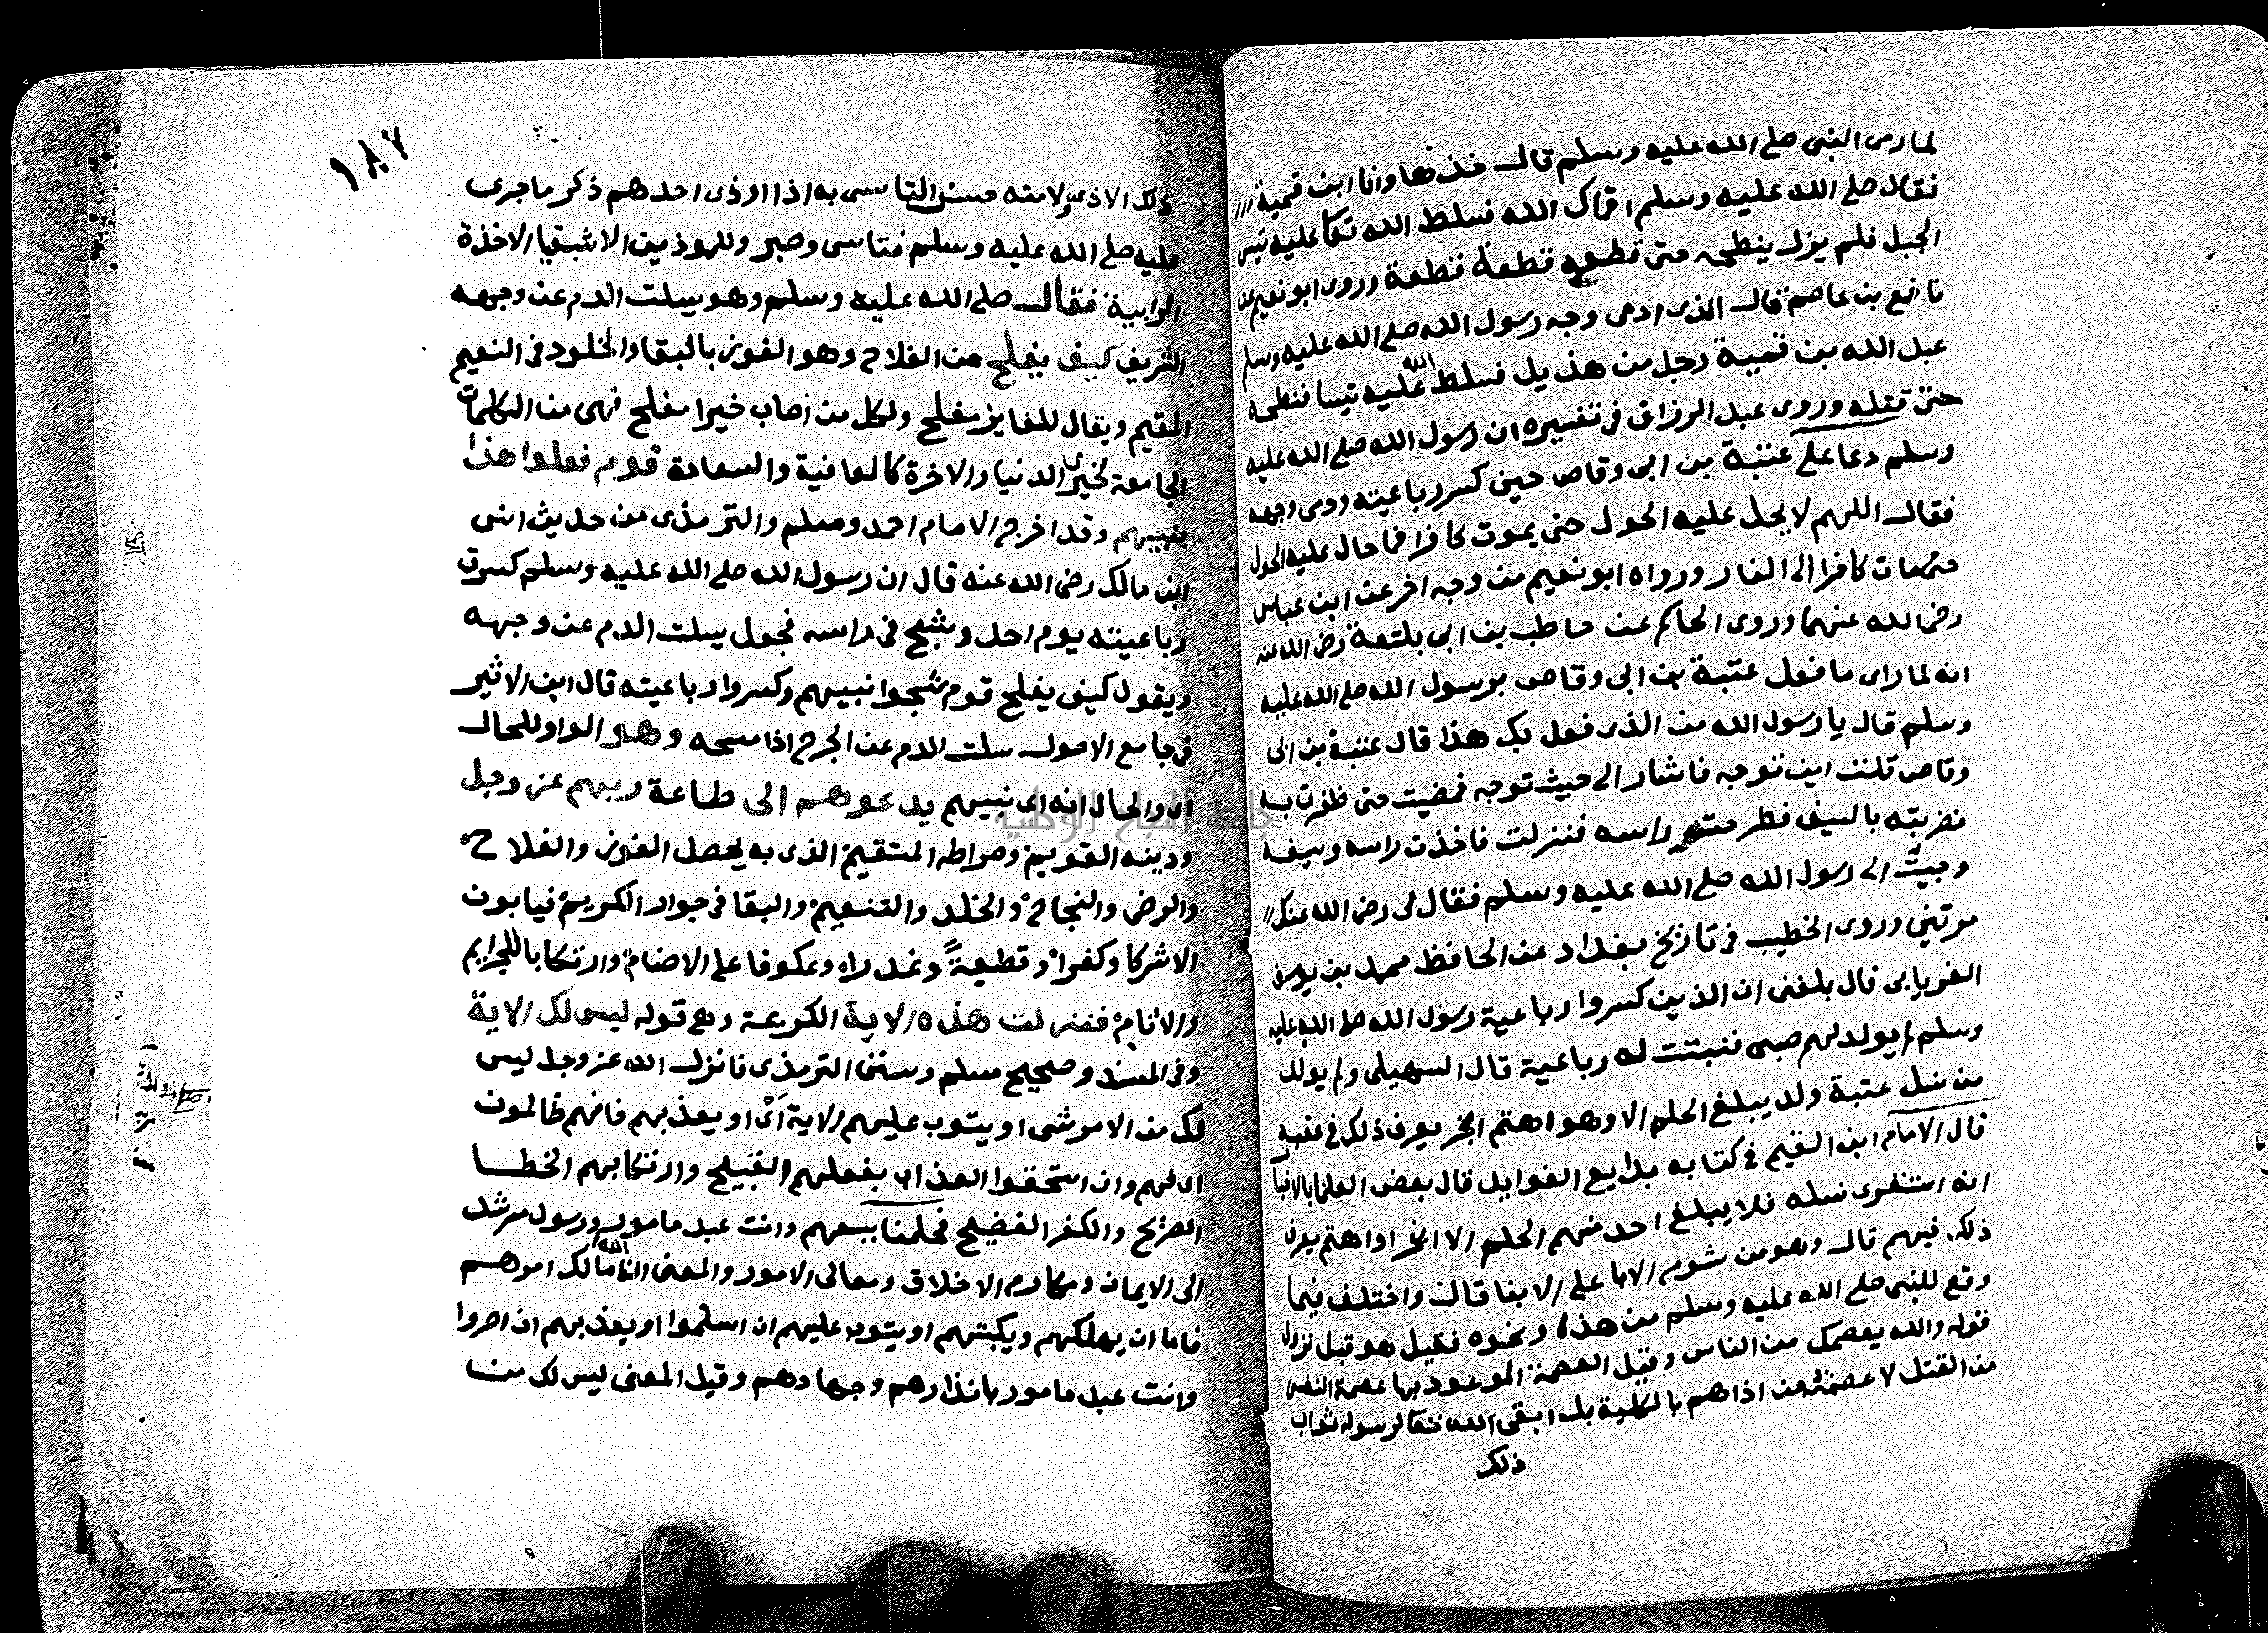 لما رمى النبى صلى الله عليه وسلم قال خذها وانا ابن قمية
فقال صلى الله عليه وسلم اقماك الله فسلط الله تعا عليه تيس
الجبل فلم يزل ينطحه حتى قطعه قطعة قطعة وروى ابو نعيم عن
نافع بن عاصم قال الذى ادمى وجه رسول الله صلى الله عليه وسلم
عبد الله بن قمية رجل من هذيل فسلط الله عليه تيسا فنطحه
حتى قتله وروى عبد الرزاق فى تفسيره ان رسول الله صلى الله عليه
وسلم دعا على عتبة بن ابى وقاص حين كسر رباعيته ودمى وجهه
فقال اللهم لا يحل عليه الحول حتى يموت كافرا فما حال عليه الحول
حتى مات كافرا الى النار ورواه ابو نعيم من وجه اخر عن ابن عباس
رضى الله عنهما وروى الحاكم عن حاطب بن ابى بلتعة رضى الله عنه
انه لما راى ما فعل عتبة بن ابى وقاص برسول الله صلى الله عليه
وسلم قال يا رسول الله من الذى فعل بك هذا قال عتبة بن ابى
وقاص قلت اين توجه فاشار الى حيث توجه فمضيت حتى ظفرت به
فضربته بالسيف فطرحت راسه فنزلت فاخذت راسه وسيفه
وجيت الى رسول الله صلى الله عليه وسلم فقال لى رضى الله عنك
مرتين وروى الخطيب فى تاريخ بغداد عن الحافظ محمد بن يوسف
الفريابى قال بلغنى ان الذين كسروا رباعية رسول الله صلى الله عليه
وسلم لم يولد لهم صبى فنبتت له رباعية قال السهيلى ولم يولد
من نسل عتبة ولد يبلغ الحلم الا وهو اهتم ابخر يعرف ذلك فى عقبه
قال الامام ابن القيم فى كتابه بدايع الفوايد قال بعض العلما بالاخبار
انه استقرى نسله فلا يبلغ احد منهم الحلم الا ابخر او اهتم يعرف
ذلك فيهم قال وهو من شوم الابا على الابنا قال واختلف فيما
وقع للنبى صلى الله عليه وسلم من هذه ونحوه فقيل هو قبل نزول
قوله والله يعصمك من الناس وقيل العصمة الموعود بها عصمة النفس
من القتل لا عصمته من اذاهم بالكلية بل ابقى الله تعا لرسوله ثواب
ذلك
١٨٧
ذلك الاذى ولامته حسن التاسى به اذا اوذى احدهم ذكر ما جرى
عليه صلى الله عليه وسلم فتاسى وصبر وللموذين الاشقيا الاخذة
الرابية فقال صلى الله عليه وسلم وهو يسلت الدم عن وجهه
الشريف كيف يفلح من الفلاح وهو الفوز بالبقا والخلود فى النعيم
المقيم ويقال للفايز مفلح ولكل من اصاب خيرا مفلح فهى من الكلمات
الجامعة لخيرى الدنيا والاخرة كالعافية والسعادة قوم فعلوا هذا
بنبيهم وقد اخرج الامام احمد ومسلم والترمذى من حديث انس
ابن مالك رضى الله عنه قال ان رسول الله صلى الله عليه وسلم كسرت
رباعيته يوم احد وشج فى راسه فجعل يسلت الدم عن وجهه
ويقول كيف يفلح قوم شجوا نبيهم وكسروا رباعيته قال ابن الاثير
فى جامع الاصول سلت الدم عن الجرح اذا مسحه وهو الواو للحال
اى والحال انه اى نبيهم يدعوهم الى طاعة ربهم عز وجل
ودينه القويم وصراطه المستقيم الذى به يحصل الفوز والفلاح
والرضى والنجاح والخلد والتنعيم والبقا فى جوار الكريم فيابون
الا شركا وكفرا وقطيعة وغدرا وعكوفا على الاصنام وارتكابا للجرايم
والاثام فنزلت هذه الاية الكريمة وهى قوله ليس لك الاية
وفى المسند وصحيح مسلم وسنن الترمذى فانزل الله عز وجل ليس
لك من الامر شى او يتوب عليهم الاية اى او يعذبهم فانهم ظالمون
اى فهم وان استحقوا العذاب بفعلهم القبيح وارتكابهم الخطا
الصريح والكفر الفضيح فحلمنا يسعهم وانت عبد مامور ورسول مرشد
الى الايمان ومكارم الاخلاق ومعالى الامور والمعنى ان الله مالك امرهم
فاما ان يهلكهم ويكبتهم او يتوب عليهم ان اسلموا او يعذبهم ان اصروا
وانت عبد مامور بانذارهم وجهادهم وقيل المعنى ليس لك من
جامعة النجاح الوطنية